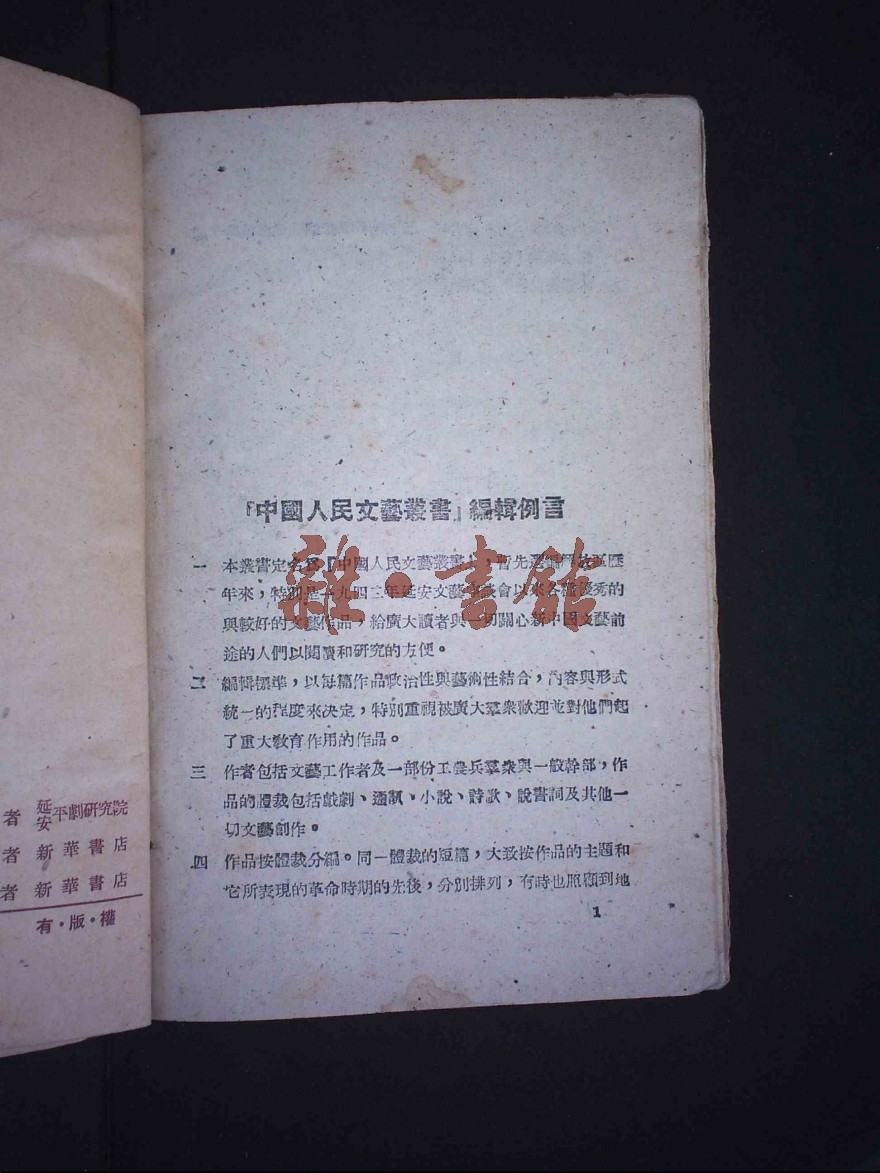 者 延安平劇研究院
者 新華書店
者 新華書店
有·版·權
『中國人民文藝叢書』編輯例言
一 本叢書定名爲『中國人民文藝叢書』,暫先選編解放區歷
年來,特別是一九四二年延安文藝座談會以來各種優秀的
與較好的文藝作品,給廣大讀者與一切關心新中國文藝前
途的人們以閱讀和研究的方便。
二 編輯標準,以每篇作品政治性與藝術性結合,內容與形式
統一的程度來決定,特別重視被廣大羣衆歡迎並對他們起
了重大敎育作用的作品。
三 作者包括文藝工作者及一部份工農兵羣衆與一般幹部,作
品的體裁包括戲劇、通訊、小說、詩歌、說書詞及其他一
切文藝創作。
四 作品按體裁分編。同一體裁的短篇,大致按作品的主題和
它所表現的革命時期的先後,分別排列,有時也照顧到地
1
雜·書館